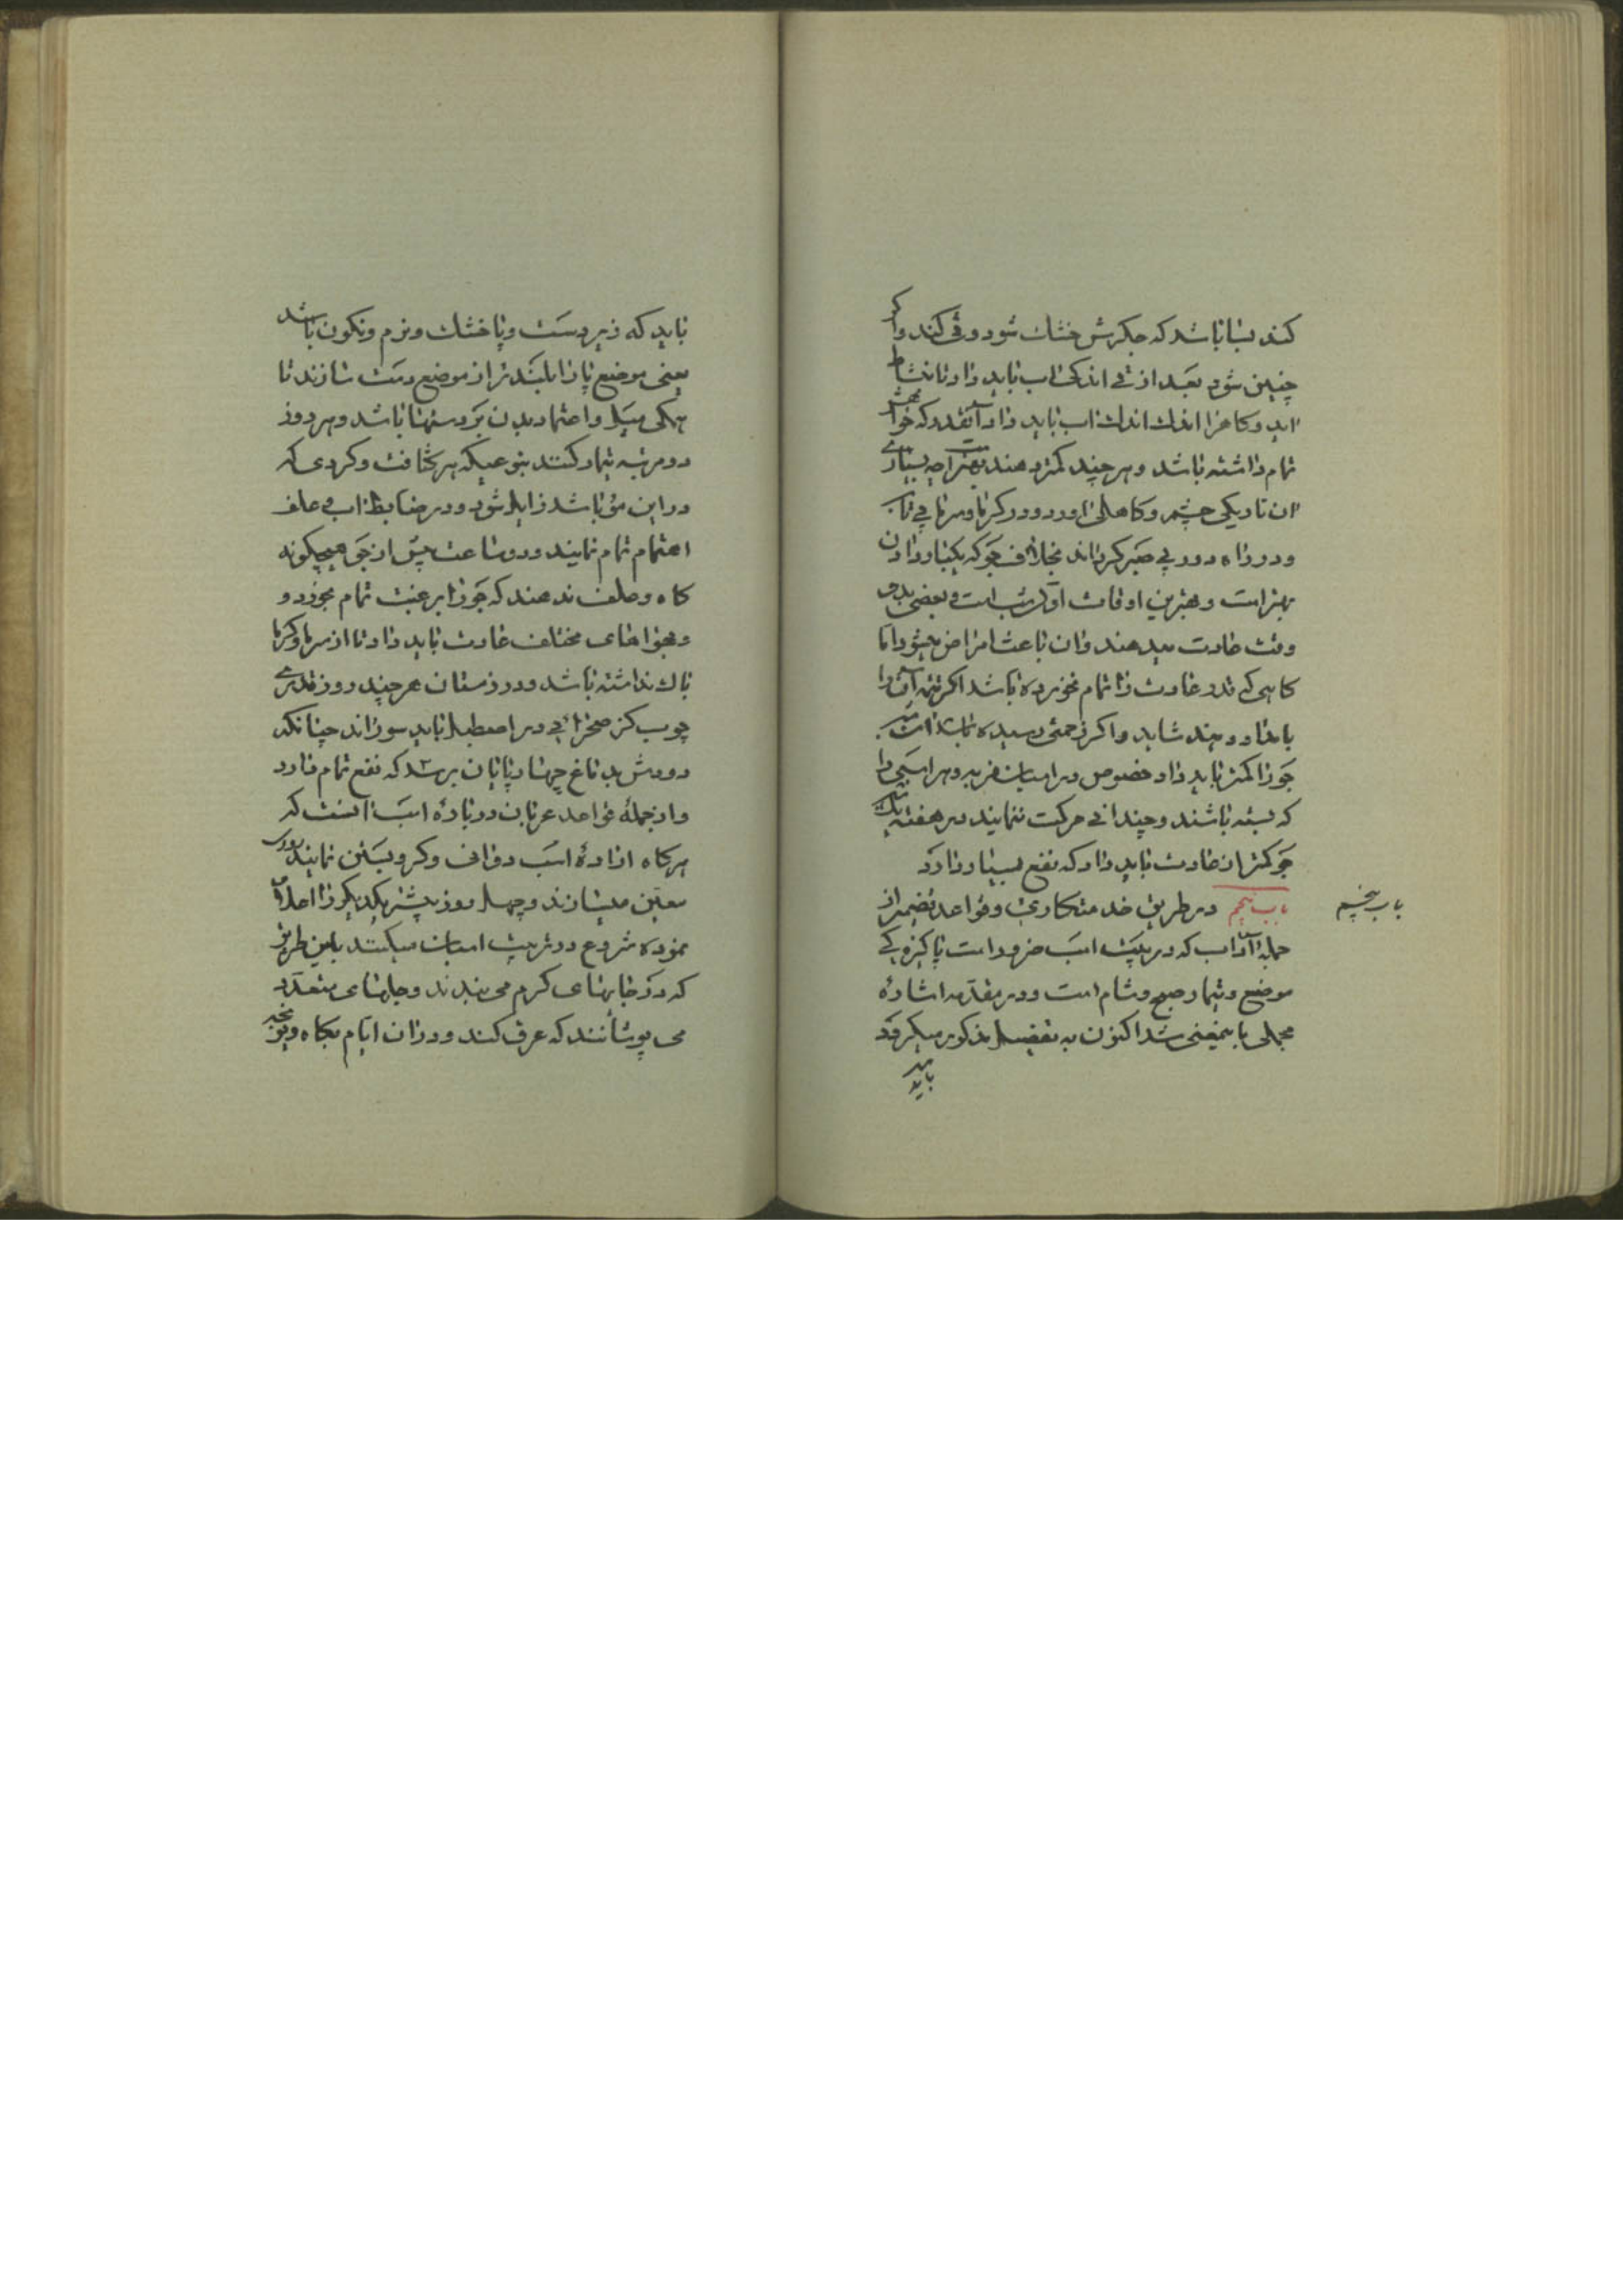 کند بسا باشد که جکرش خشک شود و قی کند و اکر
چنین شود بعد از قی اندکی اب باید داد تا بنشاط
اید و کاه را اندک اندک اب باید داد آنقدر که خواهش
تمام داشته باشد و هر چند کمتر دهند بهتر است چه بسیاری
ان تاریکی چشم و کاهلی اورد و در کرما و سرما بی تاب
و در راه دور بی صبر کرداند بخلاف جو که بسیار دادن
بهتر است و بهترین اوقات اول شب است و بعضی بدو
وقت عادت میدهند وان باعث امراض میشود اما
کاهی که قدر عادت را تمام نخورده باشد اکر تتمه آن را
بامداد دهند شاید و اکر زحمتی رسیده باشد است
جو را کمتر باید داد خصوص در اسبان فربه و هر اسبی را
که بسته باشند و چندانی حرکت ننمایند در هفته یکشب
جو کمتر از عادت باید داد که نفع بسیار دارد
باب پنجم در طریق خدمتکاری و قواعد تضمیر از
باب پنجم
جمله آداب که در تربیت اسب ضرور است پاکیزه کی
موضع و تیمار صبح و شام است و در مقدمه اشاره
مجملی باینمعنی شد اکنون به تفضیل مذکور میکردد
باید
باید که زیر دست و پا خشک و نرم و نکون باشد
یعنی موضع پا را بلندتر از موضع دست سازند تا
همکی میل و اعتماد بدن بر دستها باشد و هر روز
دو مرتبه تیمار کنند بنوعیکه هر کثافت و کردی که
در این مو باشد زایل شود و در ضابطه اب و علف
اهتمام تمام نمایند و دو ساعت پیش از جو هیچکونه
کاه و علف ندهند که جو را برغبت تمام بخورد و
و بهواهای مختلف عادت باید داد تا از سرما و کرما
باک نداشته باشد و در زمستان هر چند روز قدری
چوب کز صحرائی در اصطبل باید سوزاند چنانکه
دودش بدماغ چهار پایان برسد که نفع تمام دارد
و از جمله قواعد عربان در باره اسب آنست که
هر کاه اراده اسب دوانی و کرو بستن نمایند روزی
معین میسازند و چهل روز پیشتر یکدیکر را اعلام
نموده شروع در تربیت اسبان میکنند باین طریق
که در خانهای کرم می بندند و جلهای متعدد
می پوشانند که عرق کند و در ان ایام بکاه و یونجه